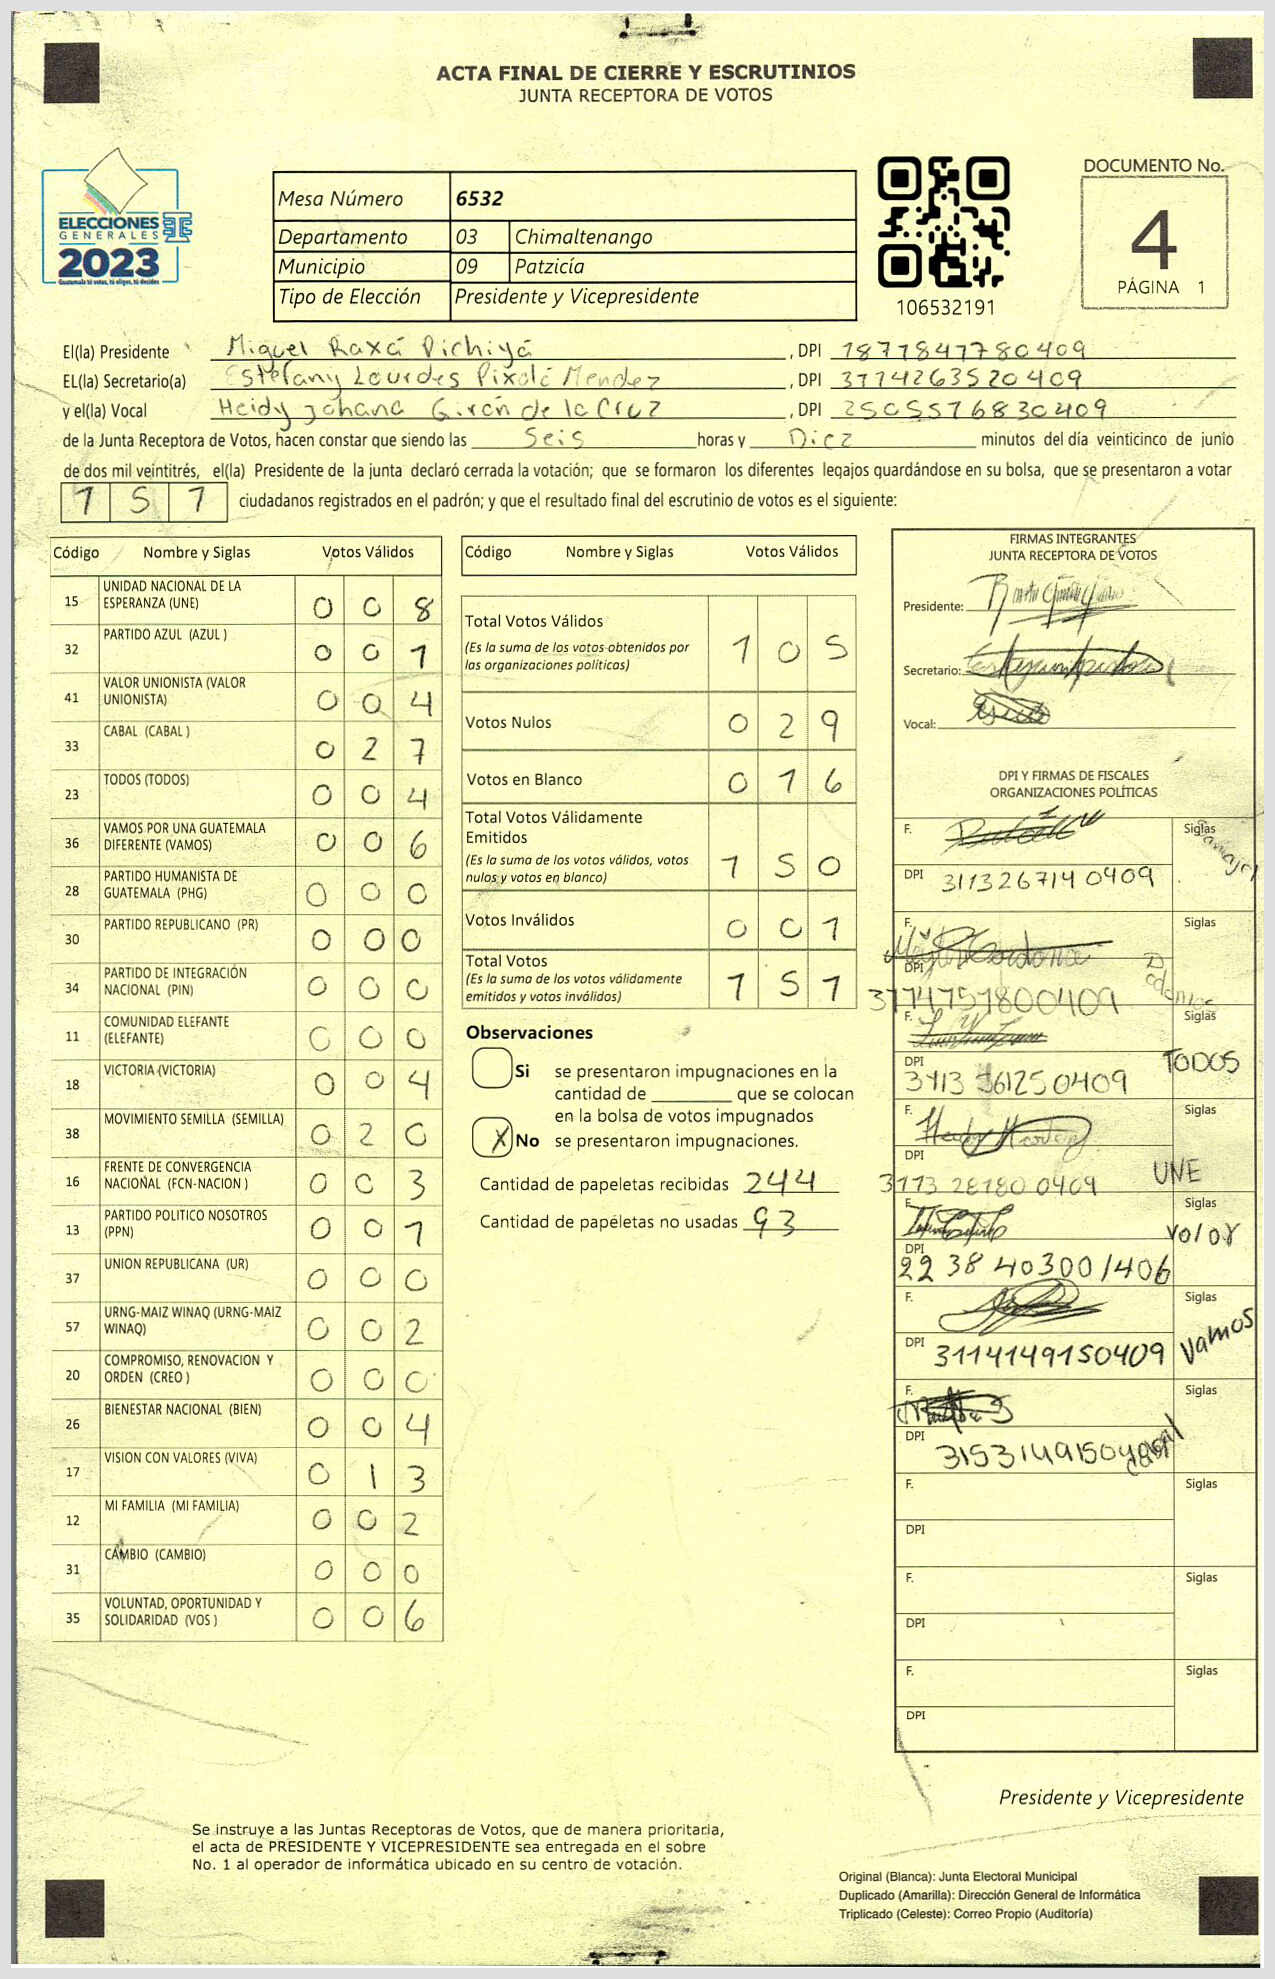 ACTA FINAL DE CIERRE Y ESCRUTINIOS
JUNTA RECEPTORA DE VOTOS
ELECCIONES
GENERALES
2023
Guatemala tú votas, tú eliges, tú decides
Mesa Número 6532
Departamento 03 Chimaltenango
Municipio 09 Patzicía
Tipo de Elección Presidente y Vicepresidente
106532191
DOCUMENTO No.
4
PÁGINA 1
El(la) Presidente Miguel Raxá Pichiyá, DPI 1877847780409
EL(la) Secretario(a) Estefany Lourdes Pixolá Mendez, DPI 3774263520409
y el(la) Vocal Heidy Johana Girón de la Cruz, DPI 2505576830409
de la Junta Receptora de Votos, hacen constar que siendo las Seis horas y Diez minutos del día veinticinco de junio
de dos mil veintitrés, el(la) Presidente de la junta declaró cerrada la votación; que se formaron los diferentes legajos quardándose en su bolsa, que se presentaron a votar
151 ciudadanos registrados en el padrón; y que el resultado final del escrutinio de votos es el siguiente:
Código Nombre y Siglas Votos Válidos
15 UNIDAD NACIONAL DE LA ESPERANZA (UNE) 0 0 8
32 PARTIDO AZUL (AZUL ) 0 0 1
41 VALOR UNIONISTA (VALOR UNIONISTA) 0 0 4
33 CABAL (CABAL ) 0 2 7
23 TODOS (TODOS) 0 0 4
36 VAMOS POR UNA GUATEMALA DIFERENTE (VAMOS) 0 0 6
28 PARTIDO HUMANISTA DE GUATEMALA (PHG) 0 0 0
30 PARTIDO REPUBLICANO (PR) 0 0 0
34 PARTIDO DE INTEGRACIÓN NACIONAL (PIN) 0 0 0
11 COMUNIDAD ELEFANTE (ELEFANTE) 0 0 0
18 VICTORIA (VICTORIA) 0 0 4
38 MOVIMIENTO SEMILLA (SEMILLA) 0 2 0
16 FRENTE DE CONVERGENCIA NACIONAL (FCN-NACION ) 0 0 3
13 PARTIDO POLITICO NOSOTROS (PPN) 0 0 1
37 UNION REPUBLICANA (UR) 0 0 0
57 URNG-MAIZ WINAQ (URNG-MAIZ WINAQ) 0 0 2
20 COMPROMISO, RENOVACION Y ORDEN (CREO ) 0 0 0
26 BIENESTAR NACIONAL (BIEN) 0 0 4
17 VISION CON VALORES (VIVA) 0 1 3
12 MI FAMILIA (MI FAMILIA) 0 0 2
31 CAMBIO (CAMBIO) 0 0 0
35 VOLUNTAD, OPORTUNIDAD Y SOLIDARIDAD (VOS ) 0 0 6
Código Nombre y Siglas Votos Válidos
Total Votos Válidos 1 0 5
(Es la suma de los votos obtenidos por
las organizaciones políticas)
Votos Nulos 0 2 9
Votos en Blanco 0 1 6
Total Votos Válidamente
Emitidos 1 5 0
(Es la suma de los votos válidos, votos
nulos y votos en blanco)
Votos Inválidos 0 0 1
Total Votos 1 5 1
(Es la suma de los votos válidamente
emitidos y votos inválidos)
Observaciones
Si se presentaron impugnaciones en la
cantidad de ________ que se colocan
en la bolsa de votos impugnados
X No se presentaron impugnaciones.
Cantidad de papeletas recibidas 244
Cantidad de papeletas no usadas 93
FIRMAS INTEGRANTES
JUNTA RECEPTORA DE VOTOS
Presidente:
Secretario:
Vocal:
DPI Y FIRMAS DE FISCALES
ORGANIZACIONES POLÍTICAS
F. Siglas
DPI 3113267140409
F. Siglas
DPI 3774757800409
F. Siglas TODOS
DPI
F. Siglas UNE
DPI 3173281800409
F. Siglas Valor
DPI 2238403001406
F. Siglas Vamos
DPI 3114149150409
F. Siglas Cabal
DPI
F. Siglas
DPI
F. Siglas
DPI
F. Siglas
DPI
Presidente y Vicepresidente
Se instruye a las Juntas Receptoras de Votos, que de manera prioritaria,
el acta de PRESIDENTE Y VICEPRESIDENTE sea entregada en el sobre
No. 1 al operador de informática ubicado en su centro de votación.
Original (Blanca): Junta Electoral Municipal
Duplicado (Amarilla): Dirección General de Informática
Triplicado (Celeste): Correo Propio (Auditoría)